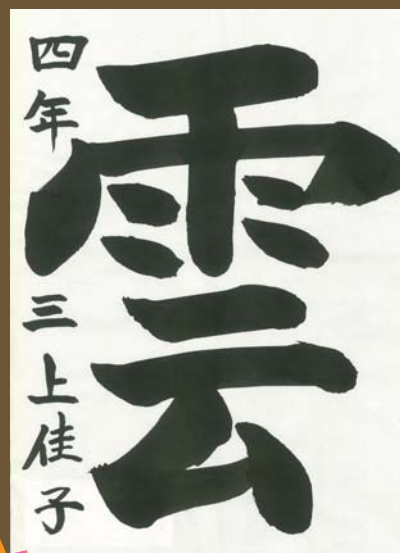 雲
四年 三上佳子